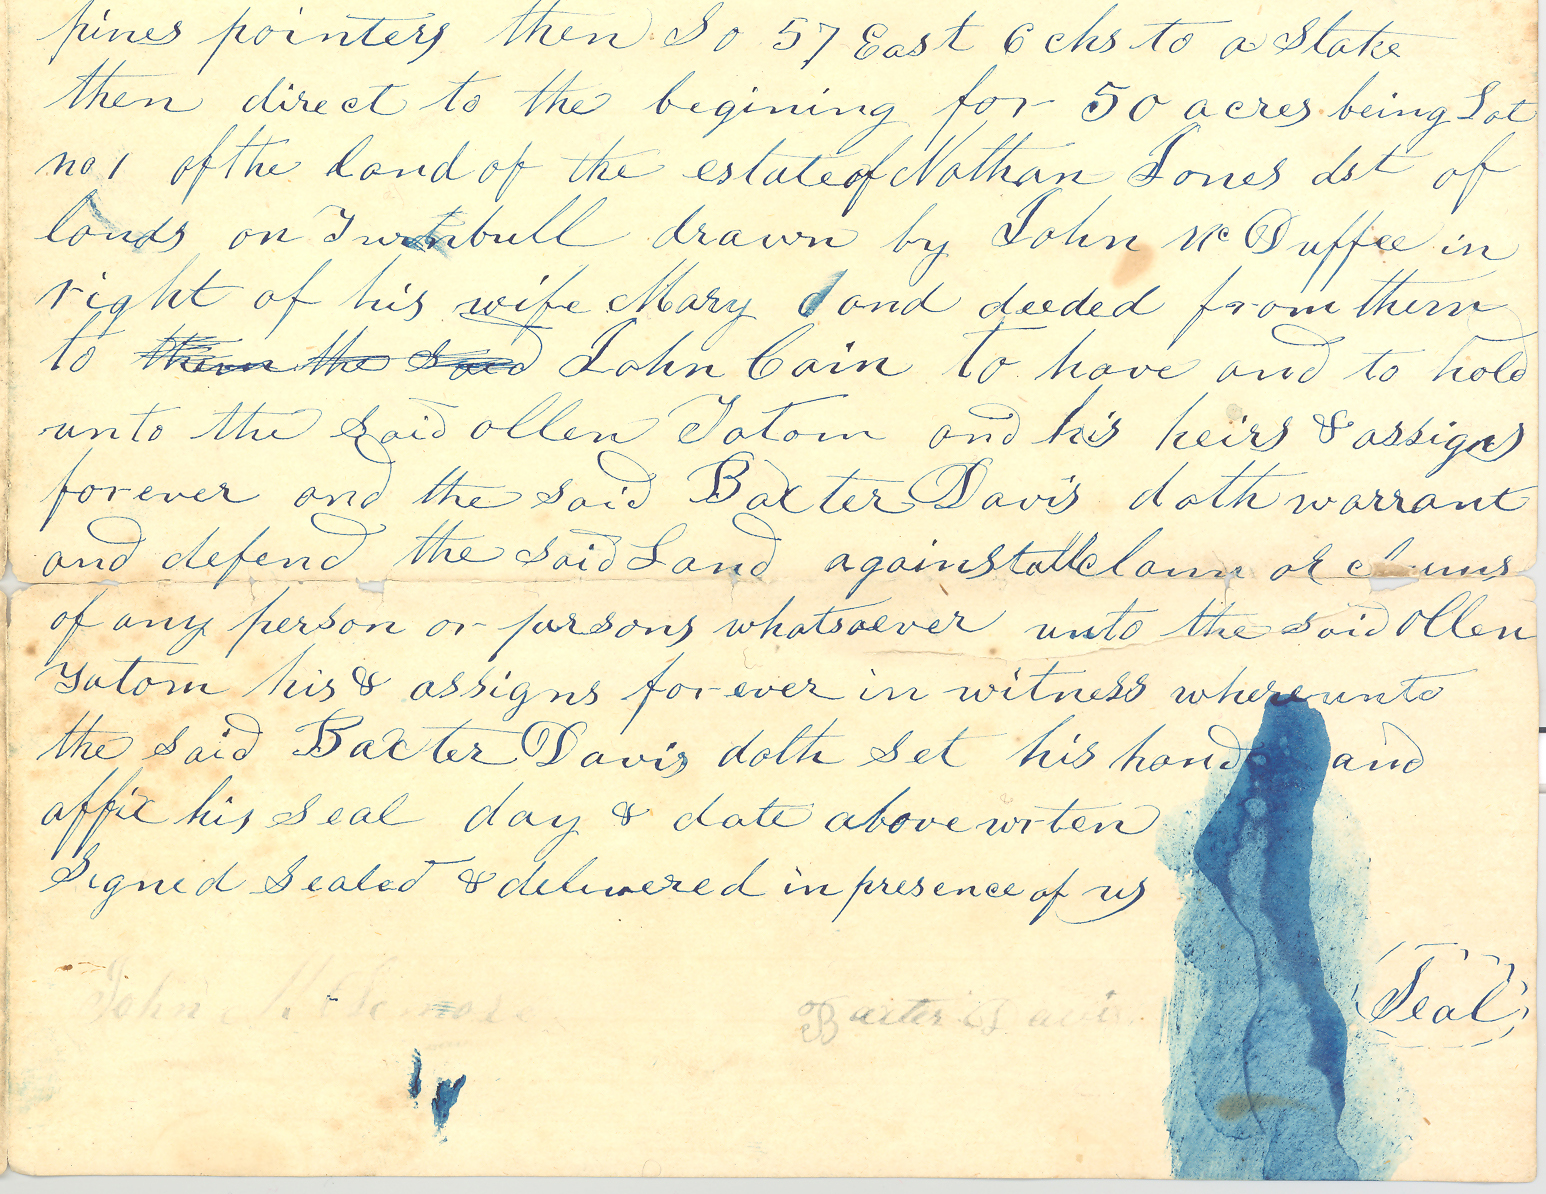 pines pointers then So 57 East 6 chs to a Stake
then direct to the begining for 50 acres being Lot
no 1 of the Land of the estate of Nathan Jones dst of
lands on Turnbull drawn by John Mc Duffee in
right of his wife Mary and deeded from them
to them the said John Cain to have and to hold
unto the said ollen Tatom and his heirs & assigns
forever and the said Baxter Davis doth warrant
and defend the said Land against all claim or
of any person or persons whatsoever unto the said Ollen
Tatom his & assigns forever in witness whereunto
the said Baxter Davis doth set his hand and
affix his seal day & date above writen
Signed Sealed & delivered in presence of us
John Baxter Davis Seal